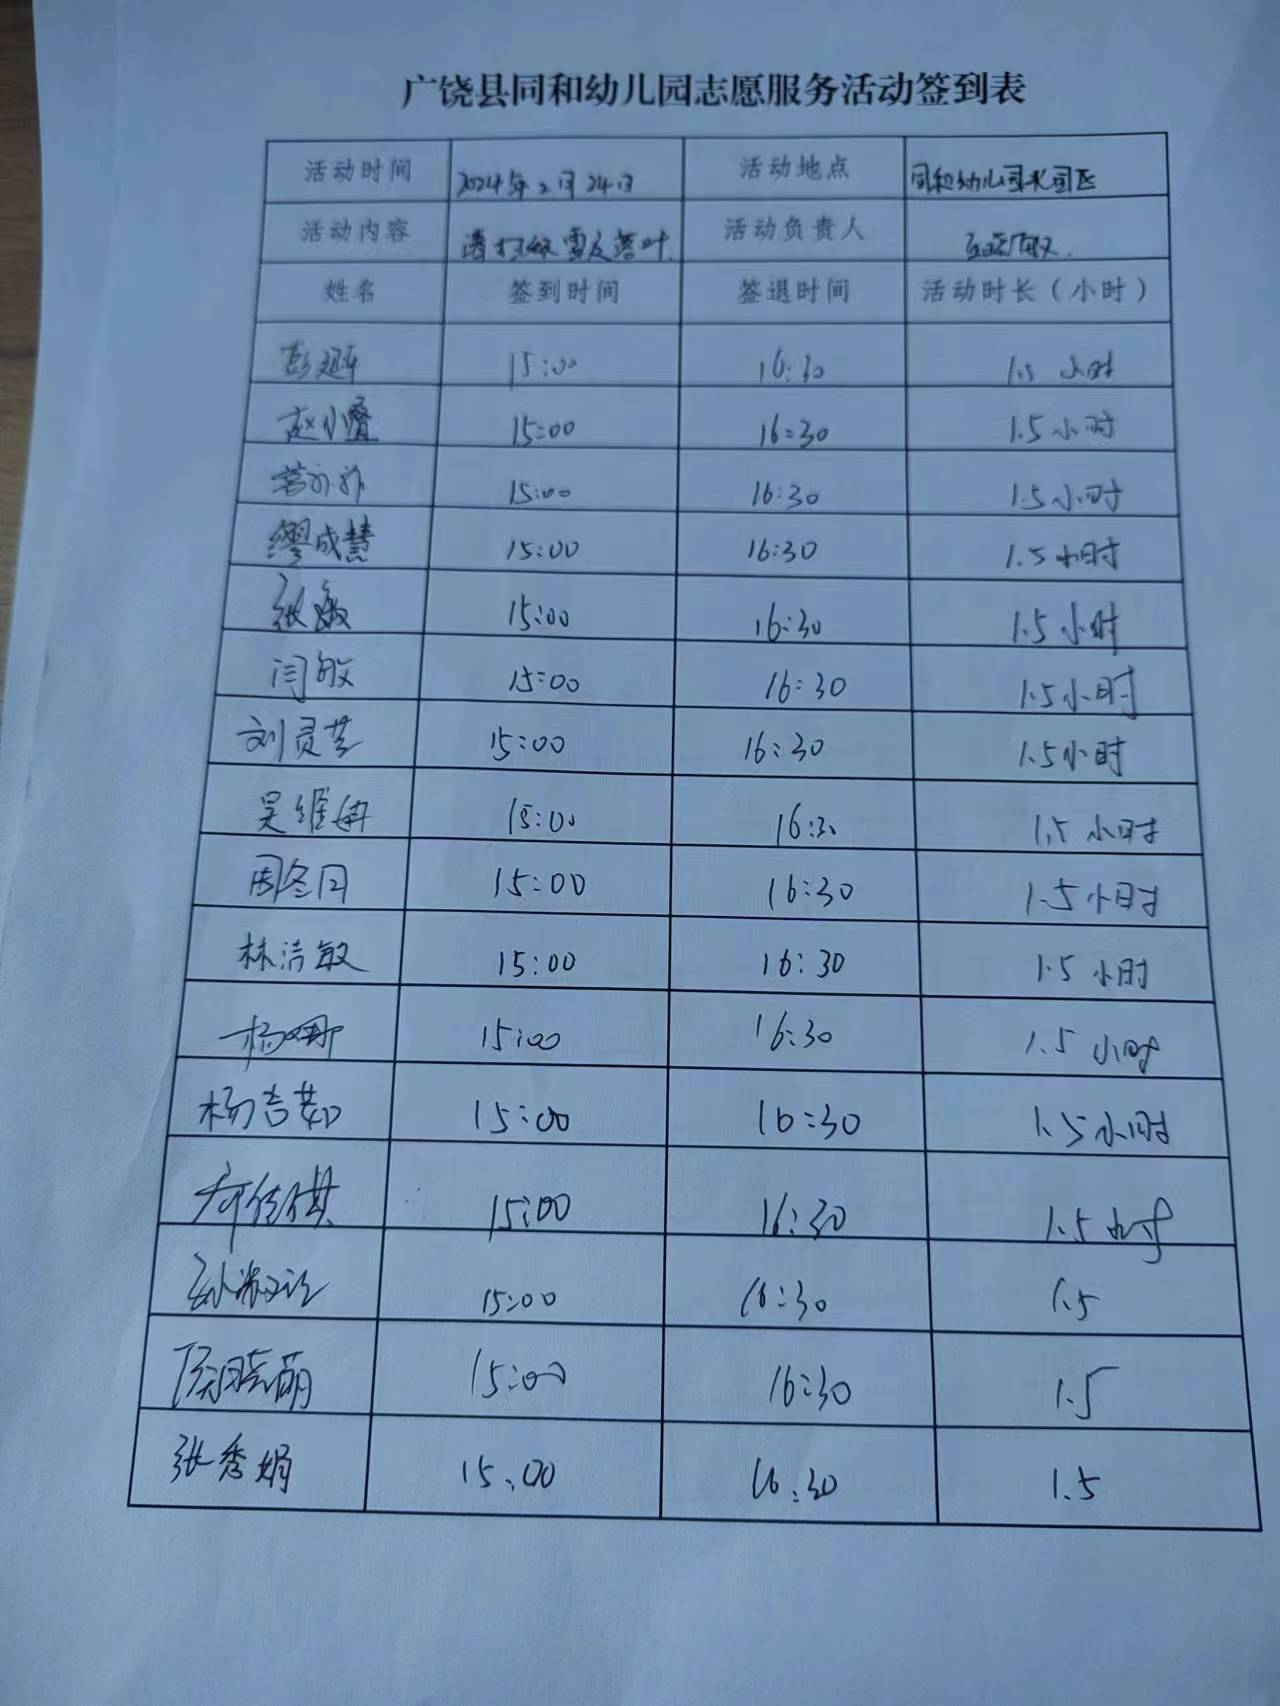 广饶县同和幼儿园志愿服务活动签到表
活动时间 2024年2月24日 活动地点 同和幼儿园北园区
活动内容 清扫积雪及落叶 活动负责人
姓名 签到时间 签退时间 活动时长（小时）
15:00 16:30 1.5 小时
赵小叠 15:00 16:30 1.5小时
15:00 16:30 1.5小时
缪成慧 15:00 16:30 1.5小时
张敏 15:00 16:30 1.5小时
闫敏 15:00 16:30 1.5小时
刘灵芝 15:00 16:30 1.5小时
吴维冉 15:00 16:30 1.5小时
周冬月 15:00 16:30 1.5小时
林洁敏 15:00 16:30 1.5小时
杨娜 15:00 16:30 1.5小时
杨吉茹 15:00 16:30 1.5小时
15:00 16:30 1.5小时
15:00 16:30 1.5
侯晓萌 15:00 16:30 1.5
张秀娟 15:00 16:30 1.5